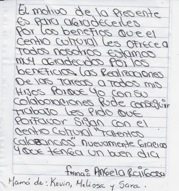 El motivo de la presente
es para agradecerles
Por los beneficios que el
centro cultural les ofrece a
todos nosotros estamos
muy agradecidos por los
beneficios, las
De las Tareas a todos mis
Hijos Porque yo con su
colaboraciones Pude conseguir
trabajo les Pido que
Porfavor Sigan con el
centro cultural Talentos
nuevamente Gracias
y que tenga un buen dia.
Firma: Angela
Mamá de: Kevin, Melissa y Sara.